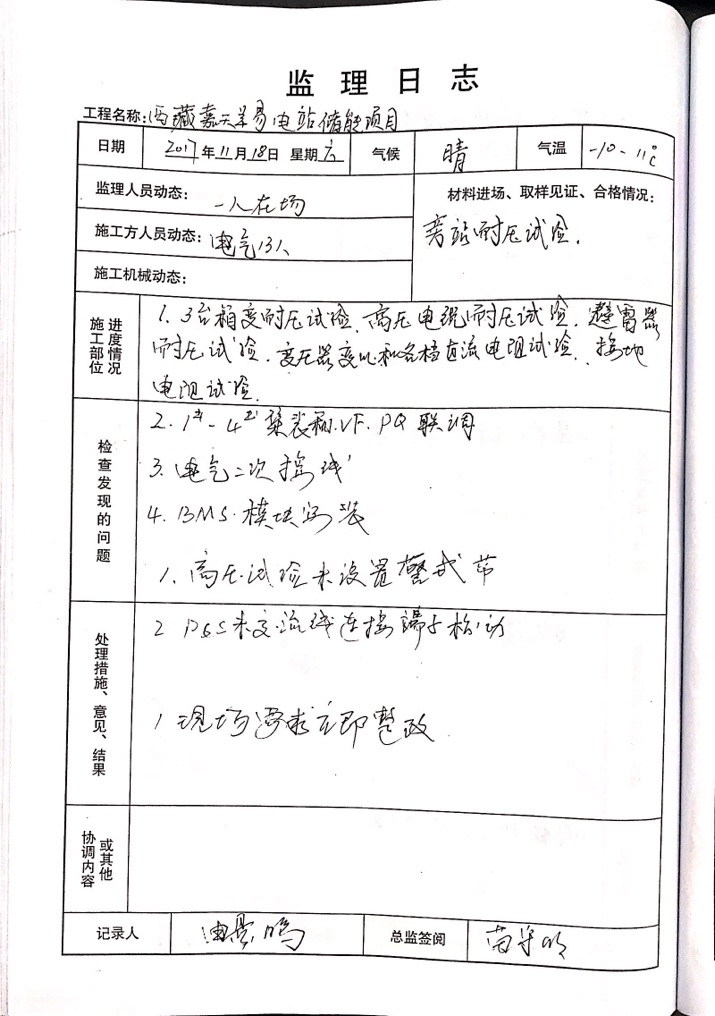 监理日志
工程名称:西藏嘉天羊易电站储能项目
日期 2017年11月18日 星期六 气候 晴 气温 -10-11℃
监理人员动态: 一人在场
材料进场、取样见证、合格情况:
施工方人员动态: 电气13人
旁站耐压试验.
施工机械动态:
施工部位 进度情况
1. 3台箱变耐压试验、高压电缆耐压试验、避雷器
耐压试验、变压器变比和各档直流电阻试验、接地
电阻试验.
检查发现的问题
2. 1#-4#集装箱.VF.PQ联调
3. 电气二次接线
4. BMS.模块安装
1. 高压试验未设置警戒带
处理措施、意见、结果
2 交流线连接端子松动
1 现场要求立即整改
协调内容 或其他
记录人
总监签阅